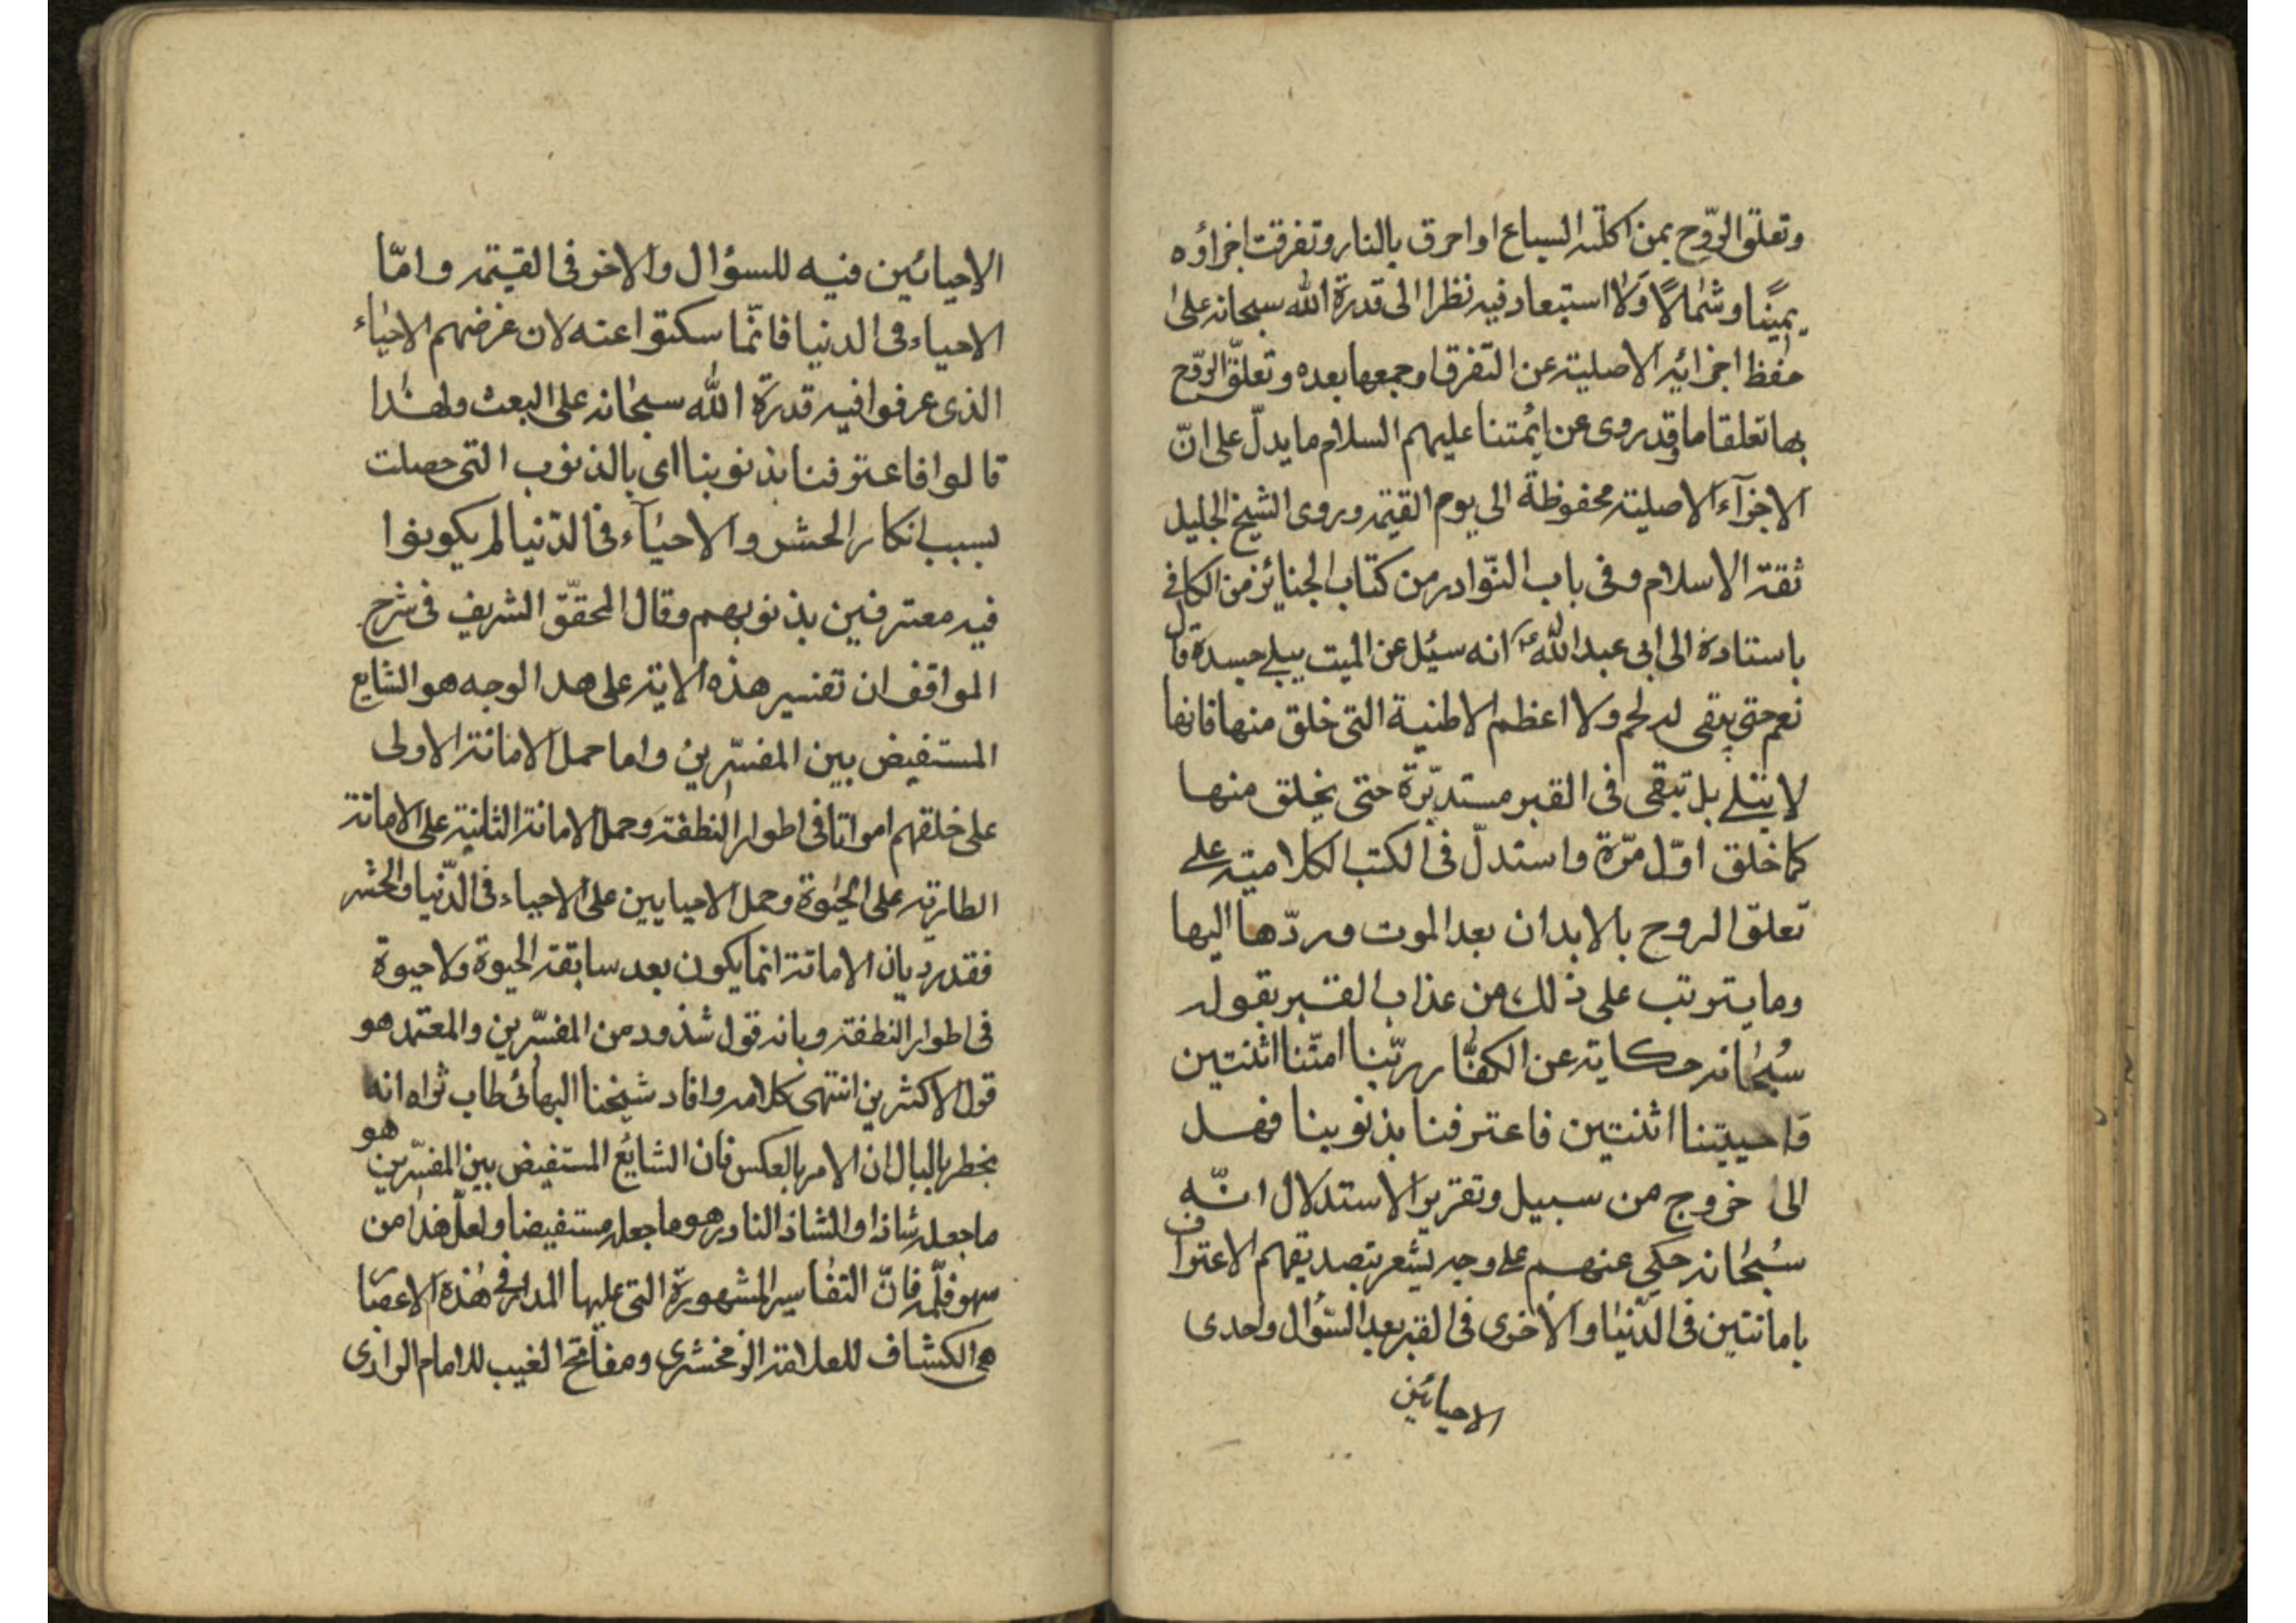 وتعلق الرّوح بمن اكلته السباع او احرق بالنار وتفرقت اجزاؤه
يمينًا وشمالًا وَلا استبعاد فيه نظرا الى قدرة الله سبحانه على
حفظ اجزائه الاصلية عن التفرق او جمعها بعده وتعلّق الرّوح
بها تعلقا ما وقد روى عن ائمتنا عليهم السلام ما يدلّ على انّ
الاجزآء الاصلية محفوظة الى يوم القيمة وروى الشيخ الجليل
ثقة الاسلام فى باب النّوادر من كتاب الجنائز من الكافى
باسناده الى ابى عبد الله ع انه سئل عن الميت يبلى جسده قال
نعم حتى يبقى له لحم ولا اعظم الا طنية التى خلق منها فانها
لا يبتلى بل تبقى فى القبر مستديرة حتى يخلق منها
كما خلق اوّل مرّة واستدلّ فى الكتب الكلامية على
تعلّق الروح بالابدان بعد الموت وردّها اليها
وما يترتب على ذلك من عذاب القبر بقوله
سُبحانه حكاية عن الكفّار ربّنا امتّنا اثنتين
وَاحييتنا اثنتين فاعترفنا بذنوبنا فهل
الى خروج من سبيل وتقرير الاستدلال انّه
سُبحانه حكى عنهم على وجه يشعر بتصديقهم الاعتراف
باماتتين فى الدّنيا والاخرى فى القبر بعد السّؤال واحدى
الاحيائين
الاحيائين فيه للسؤال والاخر فى القيمة وامّا
الاحياء فى الدنيا فانّما سكتوا عنه لان غرضهم الاحياء
الذى عرفوا فيه قدرة الله سبحانه على البعث ولهذا
قالوا فاعترفنا بذنوبنا اى بالذنوب التى حصلت
بسبب انكار الحشر والاحيآء فى الدّنيا لم يكونوا
فيه معترفين بذنوبهم وقال المحقّق الشريف فى شرح
المواقف ان تفسير هذه الاية على هدا الوجه هو الشايع
المستفيض بين المفسّرين واما حمل الاماتة الاولى
على خلقهم امواتا فى اطوار النطفة وحمل الاماتة الثانية على الاماتة
الطارية على الحيٰوة وحمل الاحيايين على الاحياء فى الدّنيا والحشر
فقد رد بان الاماتة انما يكون بعد سابقة الحيوة ولا حيوة
فى اطوار النطفة وبانه قول شذود من المفسّرين والمعتمد هو
قول الاكثرين انتهى كلامه وافاد شيخنا البهائى طاب ثراه انه
يخطر بالبال ان الامر بالعكس فان الشايع المستفيض بين المفسّرين هو
ما جعله شاذا والشاذ النادر هو ما جعله مستفيضا ولعلّ هذا من
سهو قلمه فانّ التفاسير المشهورة التى عليها المدار فى هذه الاعصار
هى الكشاف للعلامة الزمخشرى ومفاتح الغيب للامام الرازى